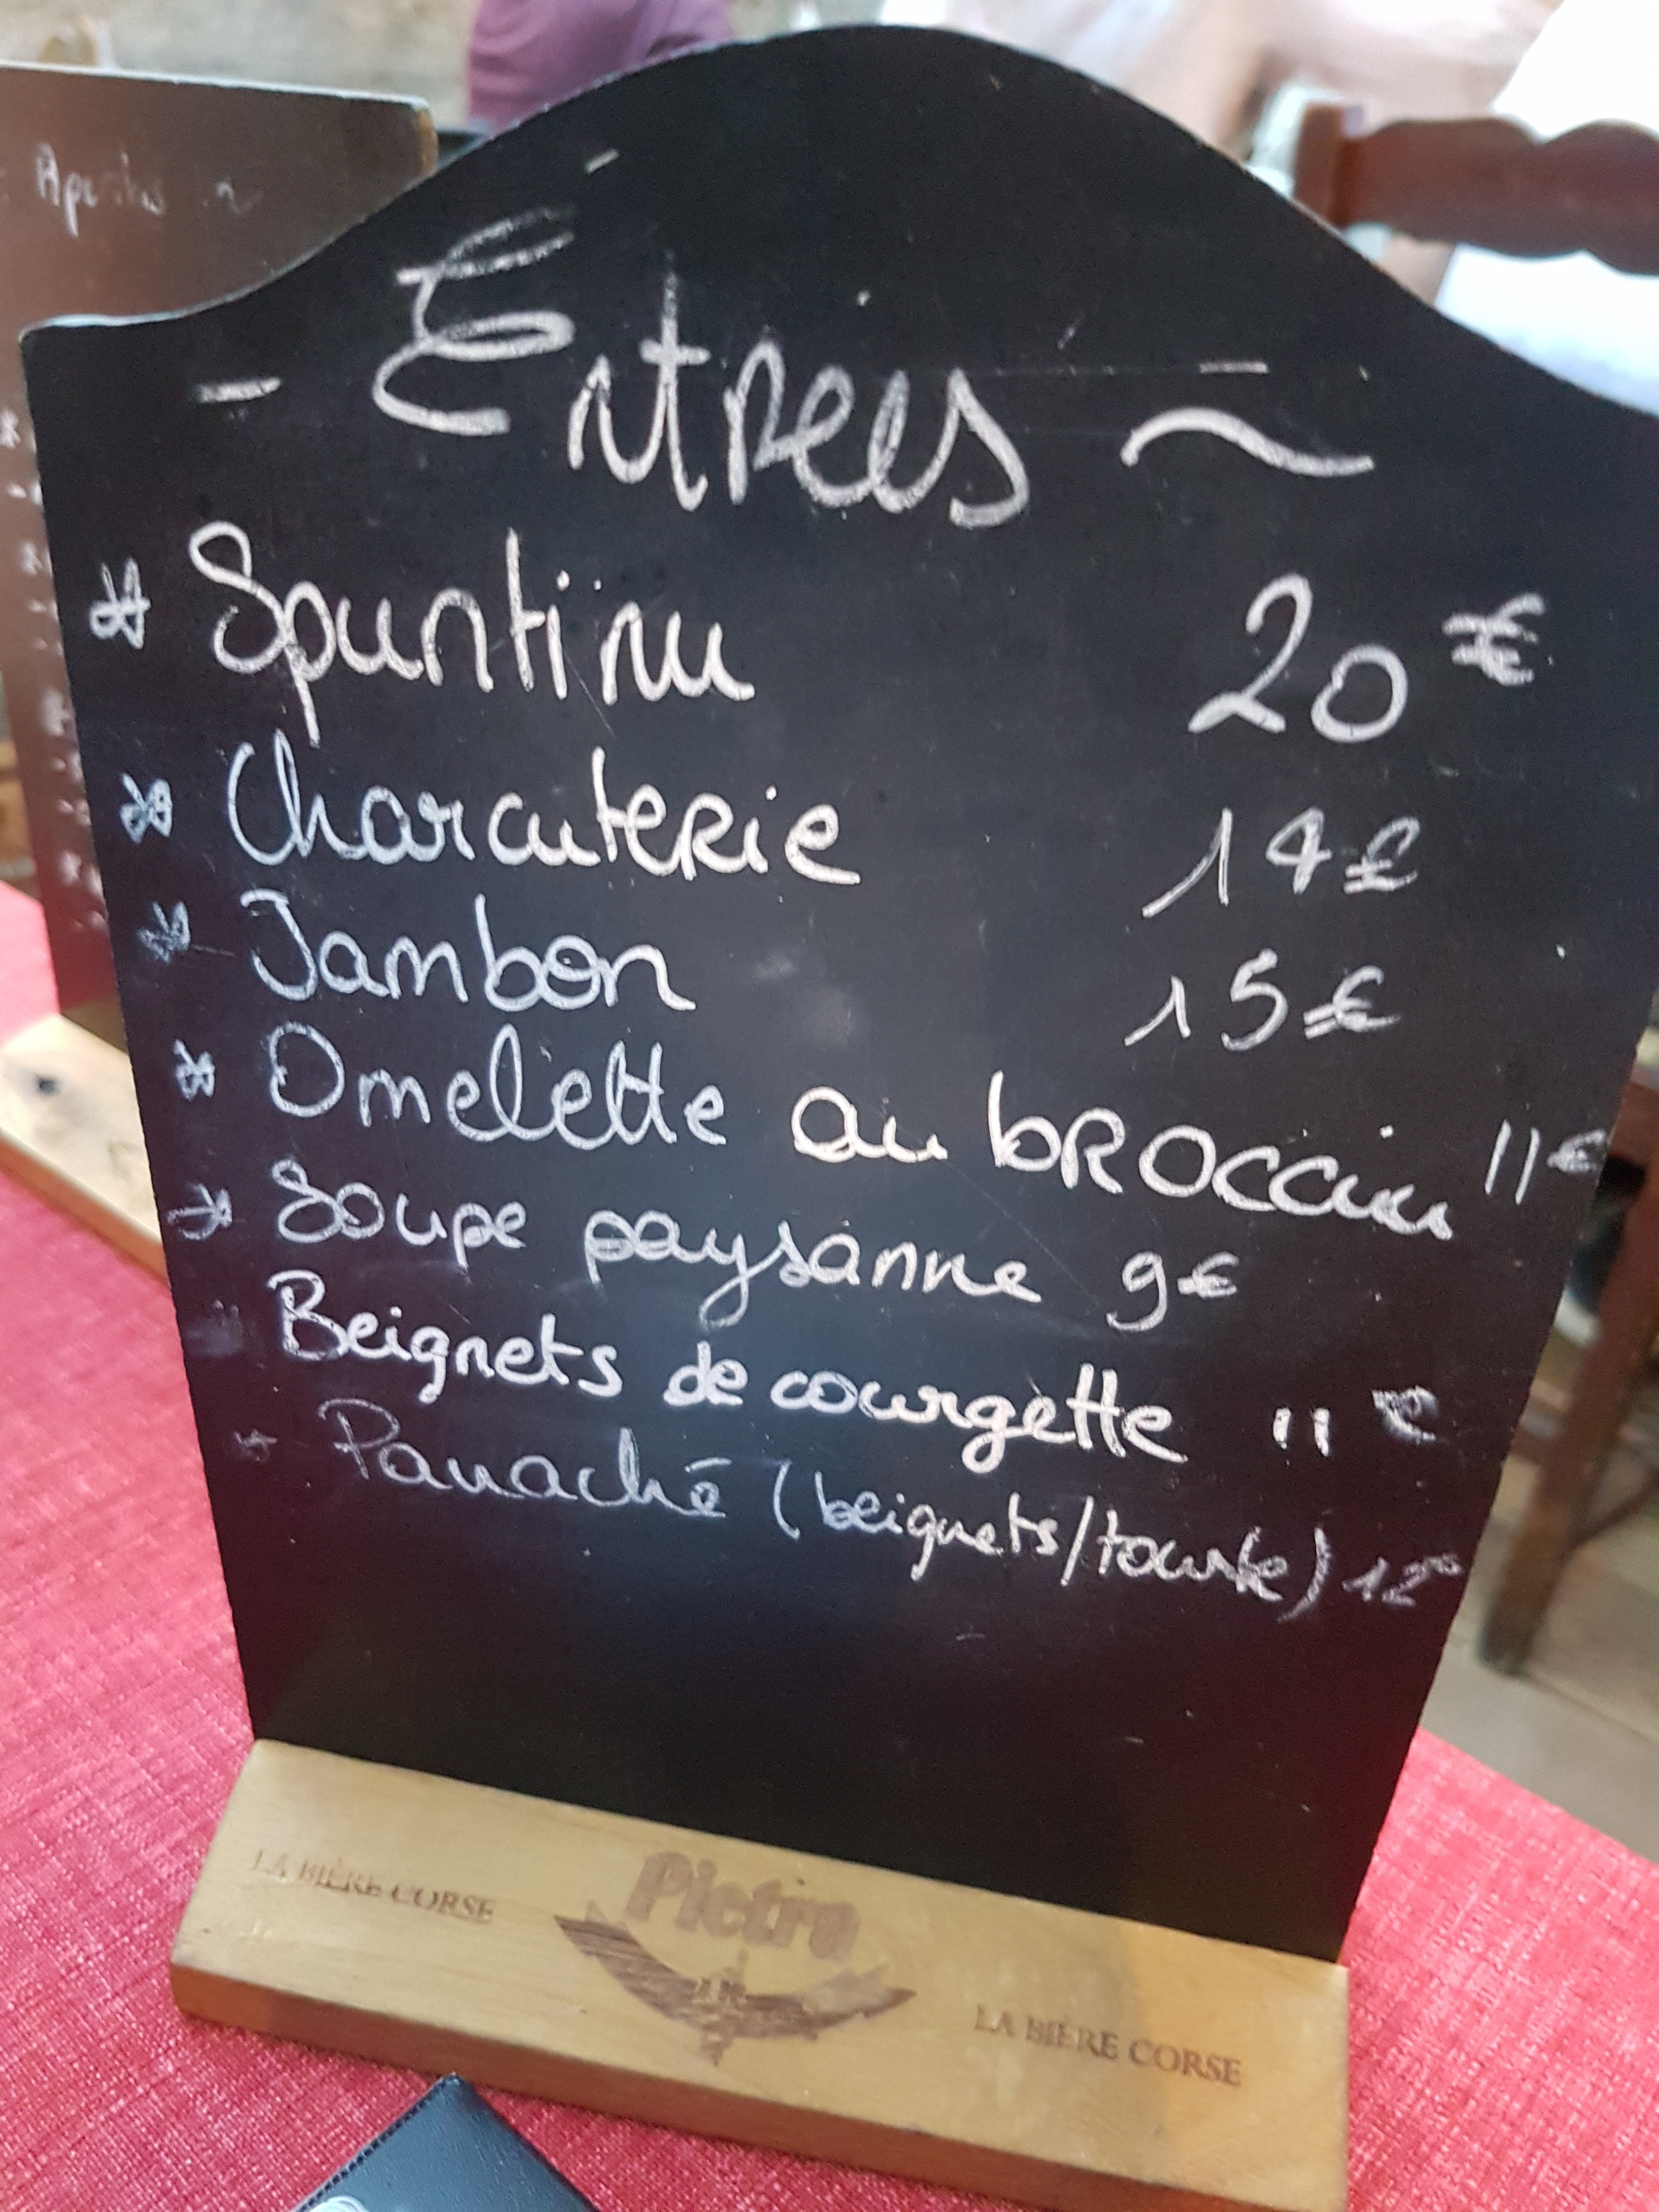 - Entrées ~
* Spuntinu 20€
* Charcuterie 14€
* Jambon 15€
* Omelette au brocciu 11€
* Soupe paysanne 9€
Beignets de courgette 11€
* Panaché (beignets/tourte) 12€
LA BIÈRE CORSE Pietra LA BIÈRE CORSE